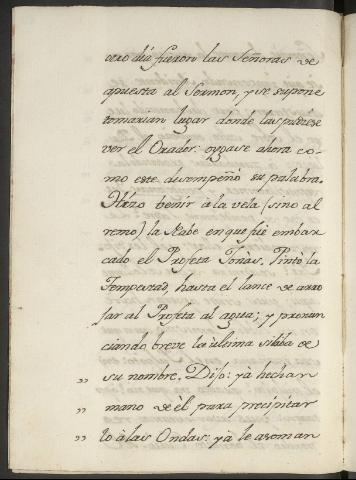 cero dia fueron las Señoras de
apuesta al Sermon, y se supone
tomarian lugar donde las pudiese
ver el Orador: oygase ahora co-
mo este desempeñò su palabra.
Hizo benir à la vela (sino al
remo) la Nabe en que fuè embar
cado el Profeta Jonas. Pintò la
Tempestad, hasta el lance de arro
jar al Profeta al agua; y pronun
ciando breve la ultima silaba de
„ su nombre. Dijo: yà hechan
„ mano de èl para precipitar
„ lo à las Ondas: yà le asoman